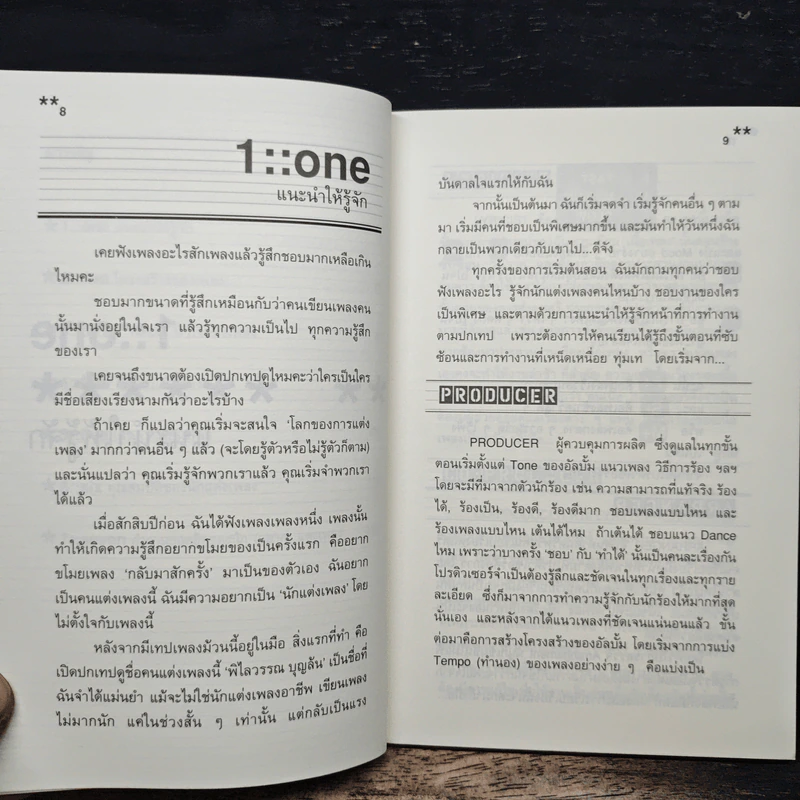 **8
1::one
แนะนำให้รู้จัก
เคยฟังเพลงอะไรสักเพลงแล้วรู้สึกชอบมากเหลือเกิน
ไหมคะ
ชอบมากขนาดที่รู้สึกเหมือนกับว่าคนเขียนเพลงคน
นั้นมานั่งอยู่ในใจเรา แล้วรู้ทุกความเป็นไป ทุกความรู้สึก
ของเรา
เคยจนถึงขนาดต้องเปิดปกเทปดูไหมคะว่าใครเป็นใคร
มีชื่อเสียงเรียงนามกันว่าอะไรบ้าง
ถ้าเคย ก็แปลว่าคุณเริ่มจะสนใจ ‘โลกของการแต่ง
เพลง’ มากกว่าคนอื่น ๆ แล้ว (จะโดยรู้ตัวหรือไม่รู้ตัวก็ตาม)
และนั่นแปลว่า คุณเริ่มรู้จักพวกเราแล้ว คุณเริ่มจำพวกเรา
ได้แล้ว
เมื่อสักสิบปีก่อน ฉันได้ฟังเพลงเพลงหนึ่ง เพลงนั้น
ทำให้เกิดความรู้สึกอยากขโมยของเป็นครั้งแรก คืออยาก
ขโมยเพลง ‘กลับมาสักครั้ง’ มาเป็นของตัวเอง ฉันอยาก
เป็นคนแต่งเพลงนี้ ฉันมีความอยากเป็น ‘นักแต่งเพลง’ โดย
ไม่ตั้งใจกับเพลงนี้
หลังจากมีเทปเพลงม้วนนี้อยู่ในมือ สิ่งแรกที่ทำ คือ
เปิดปกเทปดูชื่อคนแต่งเพลงนี้ ‘พิไลวรรณ บุญล้น’ เป็นชื่อที่
ฉันจำได้แม่นยำ แม้จะไม่ใช่นักแต่งเพลงอาชีพ เขียนเพลง
ไม่มากนัก แค่ในช่วงสั้น ๆ เท่านั้น แต่กลับเป็นแรง
9**
บันดาลใจแรกให้กับฉัน
จากนั้นเป็นต้นมา ฉันก็เริ่มจดจำ เริ่มรู้จักคนอื่น ๆ ตาม
มา เริ่มมีคนที่ชอบเป็นพิเศษมากขึ้น และมันทำให้วันหนึ่งฉัน
กลายเป็นพวกเดียวกับเขาไป...ดีจัง
ทุกครั้งของการเริ่มต้นสอน ฉันมักถามทุกคนว่าชอบ
ฟังเพลงอะไร รู้จักนักแต่งเพลงคนไหนบ้าง ชอบงานของใคร
เป็นพิเศษ และตามด้วยการแนะนำให้รู้จักหน้าที่การทำงาน
ตามปกเทป เพราะต้องการให้คนเรียนได้รู้ถึงขั้นตอนที่ซับ
ซ้อนและการทำงานที่เหน็ดเหนื่อย ทุ่มเท โดยเริ่มจาก...
PRODUCER
PRODUCER ผู้ควบคุมการผลิต ซึ่งดูแลในทุกขั้น
ตอนเริ่มตั้งแต่ Tone ของอัลบั้ม แนวเพลง วิธีการร้อง ฯลฯ
โดยจะมีที่มาจากตัวนักร้อง เช่น ความสามารถที่แท้จริง ร้อง
ได้, ร้องเป็น, ร้องดี, ร้องดีมาก ชอบเพลงแบบไหน และ
ร้องเพลงแบบไหน เต้นได้ไหม ถ้าเต้นได้ ชอบแนว Dance
ไหม เพราะว่าบางครั้ง ‘ชอบ’ กับ ‘ทำได้’ นั้นเป็นคนละเรื่องกัน
โปรดิวเซอร์จำเป็นต้องรู้ลึกและชัดเจนในทุกเรื่องและทุกราย
ละเอียด ซึ่งก็มาจากการทำความรู้จักกับนักร้องให้มากที่สุด
นั่นเอง และหลังจากได้แนวเพลงที่ชัดเจนแน่นอนแล้ว ขั้น
ต่อมาคือการสร้างโครงสร้างของอัลบั้ม โดยเริ่มจากการแบ่ง
Tempo (ทำนอง) ของเพลงอย่างง่าย ๆ คือแบ่งเป็น